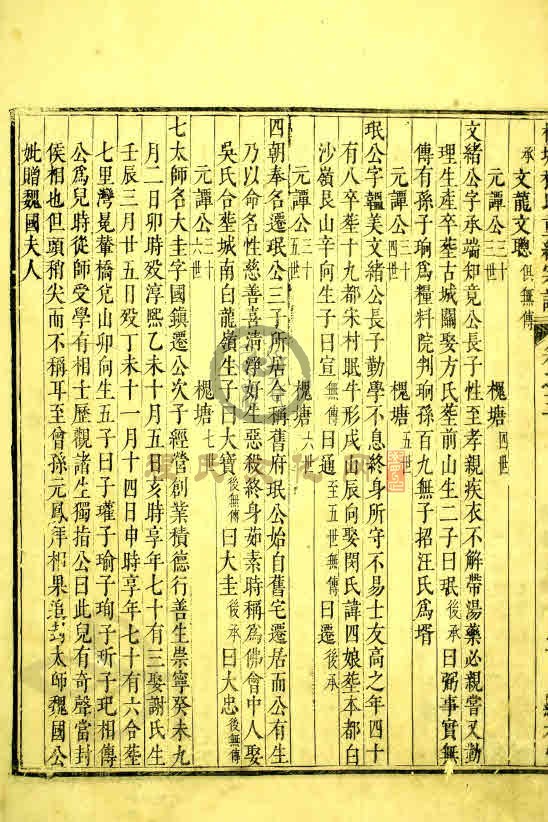 承 文龍文聰俱無傳
元譚公三十三世 槐塘四世
文緒公字承端知竟公長子性至孝親疾衣不解帶湯藥必親嘗又勤
理生產卒塟古城關娶方氏塟前山生二子曰珉後承曰弼事實無
傳有孫子珣爲糧料院判珣孫百九無子招汪氏爲壻
元譚公三十四世 槐塘五世
珉公字韞美文緒公長子勤學不息終身所守不易士友高之年四十
有八卒塟十九都宋村眠牛形戌山辰向娶閔氏諱四娘塟本都白
沙嶺艮山辛向生子曰宣無傳曰通至五世無傳曰遷後承
元譚公三十五世 槐塘六世
四朝奉名遷珉公三子所居合稱舊府珉公始自舊宅遷居而公有生
乃以命名性慈善喜清淨好生惡殺終身茹素時稱爲佛會中人娶
吳氏合塟城南白龍嶺生子曰大寶後無傳曰大圭後承曰大忠後無傳
元譚公三十六世 槐塘七世
七太師名大圭字國鎮遷公次子經營創業積德行善生崇寧癸未九
月二日卯時歿淳熙乙未十月五日亥時享年七十有三娶謝氏生
壬辰三月廿五日歿丁未十一月十四日申時享年七十有六合塟
七里灣晃輋橋兌山卯向生五子曰子瓘子瑜子珣子玠子玘相傳
公爲兒時從師受學有相士歷觀諸生獨指公曰此兒有奇聲當封
侯相也但頭稍尖而不稱耳至曾孫元鳳拜相果追封太師魏國公
妣贈魏國夫人